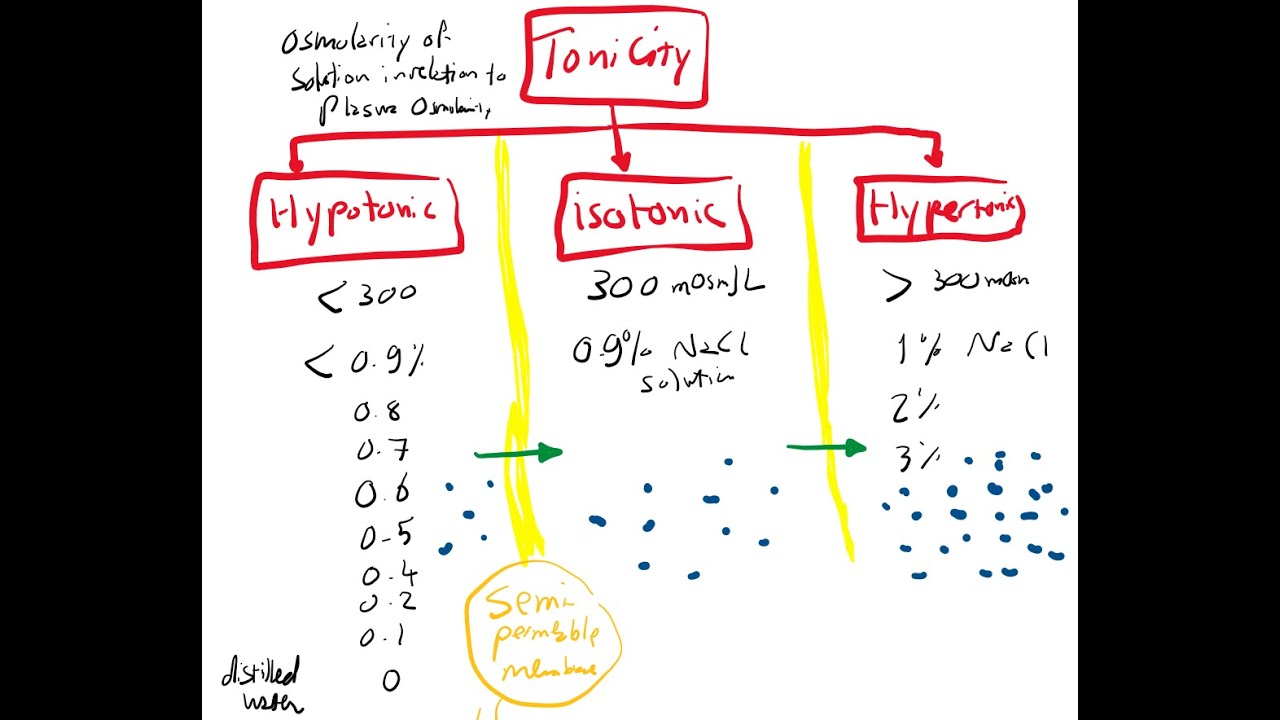 Osmolarity of
solution in relation to
plasma Osmolarity
Tonicity
Hypotonic
< 300
< 0.9%
0.8
0.7
0.6
0.5
0.4
0.2
0.1
distilled
water
0
isotonic
300 mOsm/L
0.9% NaCl
solution
Hypertonic
> 300 mosm
1% NaCl
2%
3%
Semi
permeable
membrane